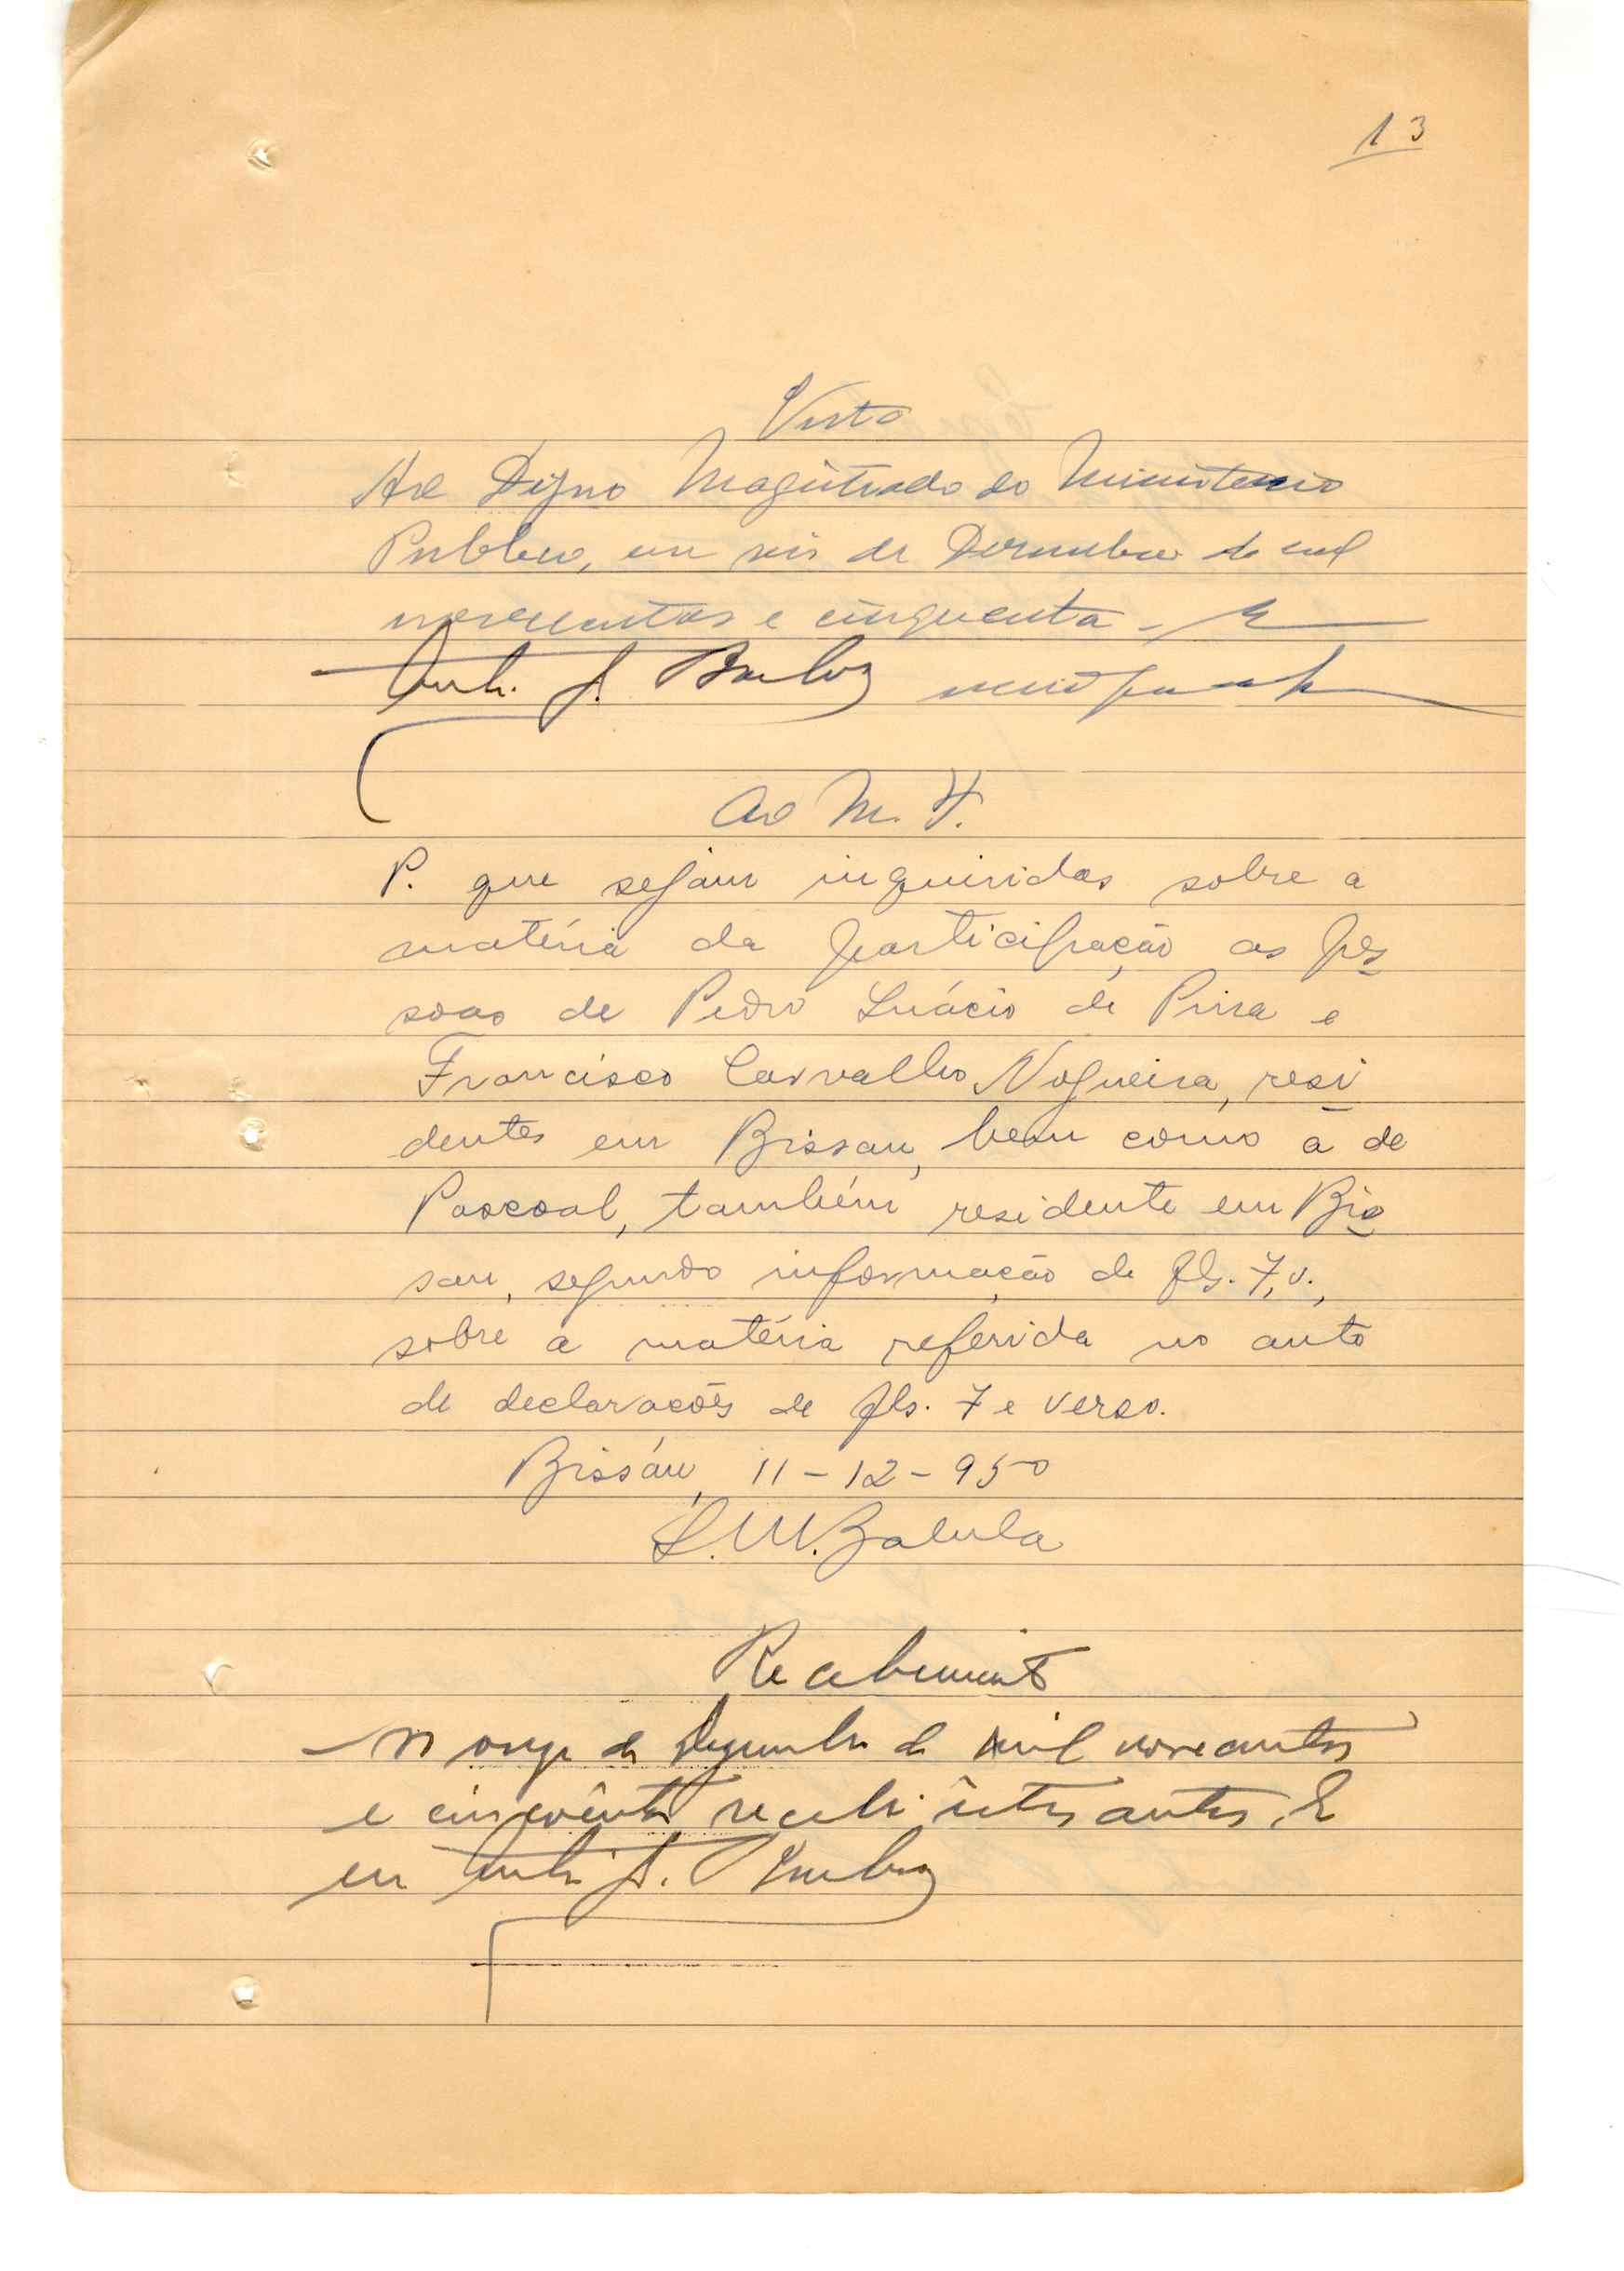 13
Visto
Ao Digno Magistrado do Ministerio
Publico, em seis de Dezembro de mil
novecentos e cinquenta. E
Ao M. P.
P. que sejam inquiridas sobre a
matéria da participação as pes
soas de Pedro Inácio de Pina e
Francisco Carvalho Nogueira, resi
dentes em Bissau, bem como a de
Pascoal, também residente em Bis
sau, segundo informação de fls. 7, v.,
sobre a matéria referida no auto
de declarações de fls. 7 e verso.
Bissáu, 11-12-950
Recebimento
onze de Dezembro de mil novecentos
e cincoênta recebi êstes autos. E
eu